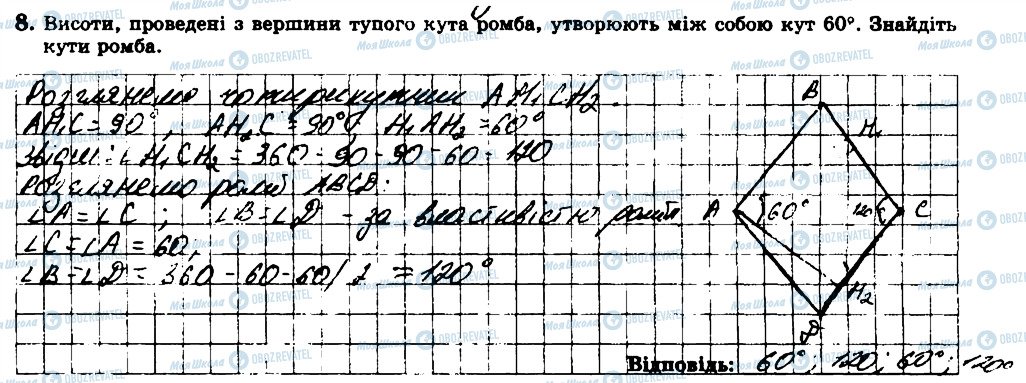 8. Висоти, проведені з вершини тупого кута ромба, утворюють між собою кут 60°. Знайдіть
кути ромба.
Розглянемо чотирикутник AH₁CH₂.
AH₁C = 90°; AH₂C = 90°; H₁AH₂ = 60°
Звідси: ∠H₁CH₂ = 360 - 90 - 90 - 60 = 120
Розглянемо ромб ABCD:
∠A = ∠C; ∠B = ∠D - за властивістю ромба
∠C = ∠A = 60;
∠B = ∠D = 360 - 60 - 60/2 = 120°
B
H₁
A 60° 120 C
H₂
D
Відповідь: 60°; 120; 60°; 120°